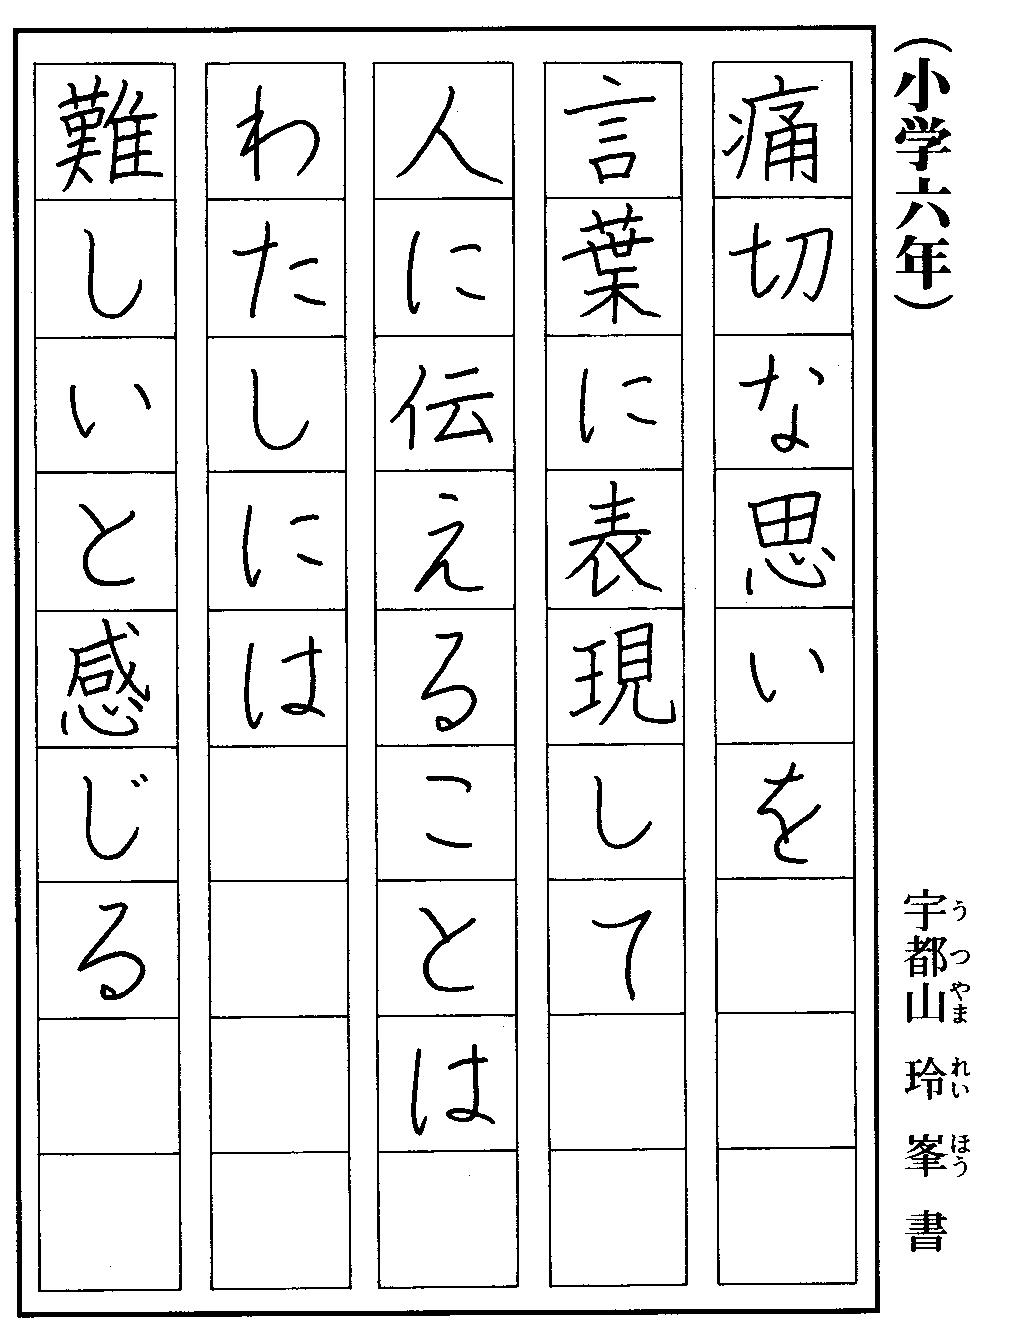 (小学六年)
宇都山 玲峯 書
うつやま れい ほう
痛切な思いを
言葉に表現して
人に伝えることは
わたしには
難しいと感じる